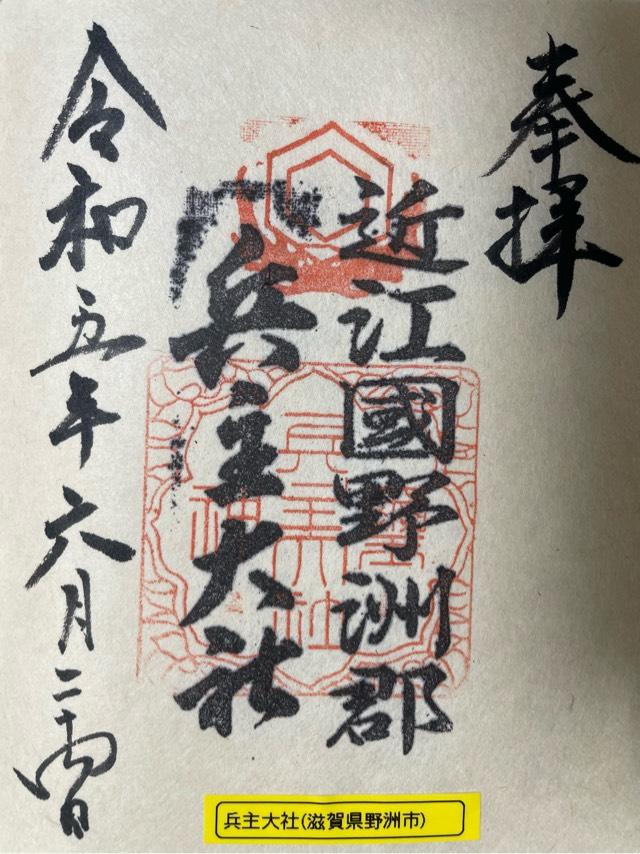 奉拝
近江國野洲郡
兵主大社
令和五年六月二十四日
兵主大社(滋賀県野洲市)